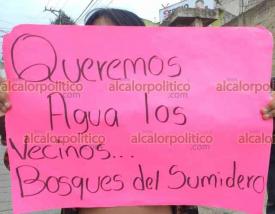 Queremos
Agua los
vecinos...
Bosques del Sumidero
alcalorpolitico
.com
alcalorpolitico
.com
alcalorpolitico
.com
alcalorpolitico
.com
alcalorpolitico
.com
alcalorpolitico
.com